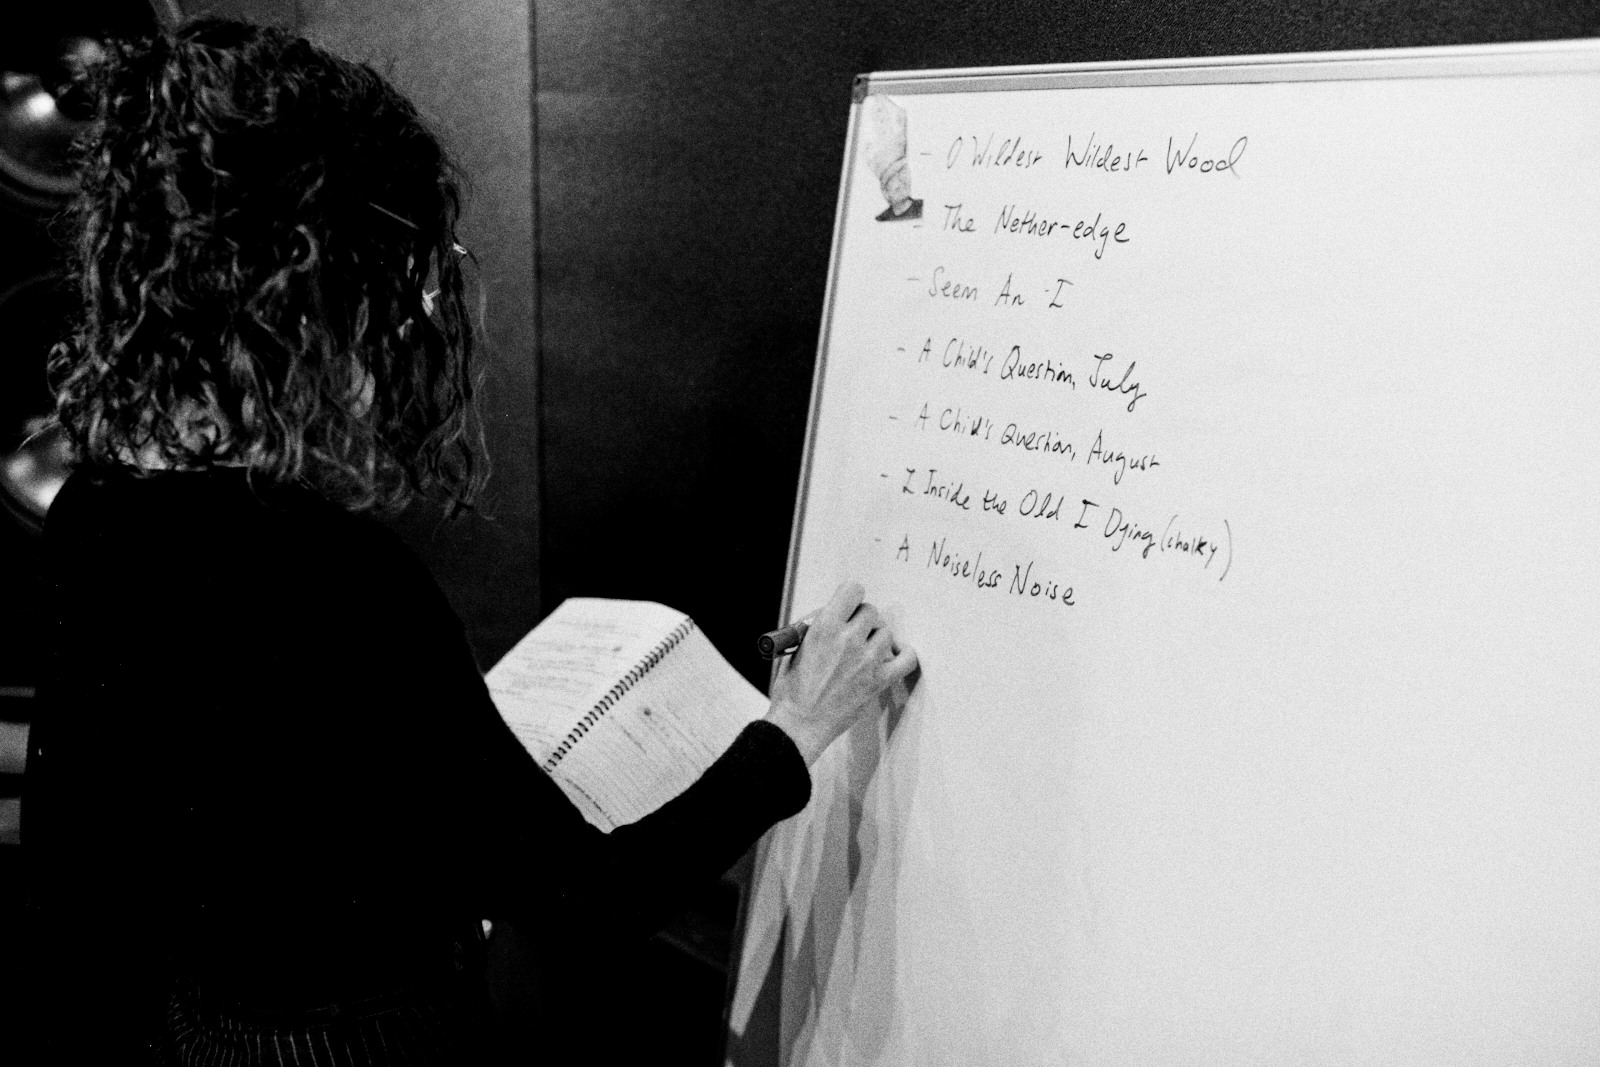 - O Wildest Wildest Wood
- The Nether-edge
- Seem An I
- A Child's Question, July
- A Child's Question, August
- I Inside the Old I Dying (chalky)
- A Noiseless Noise